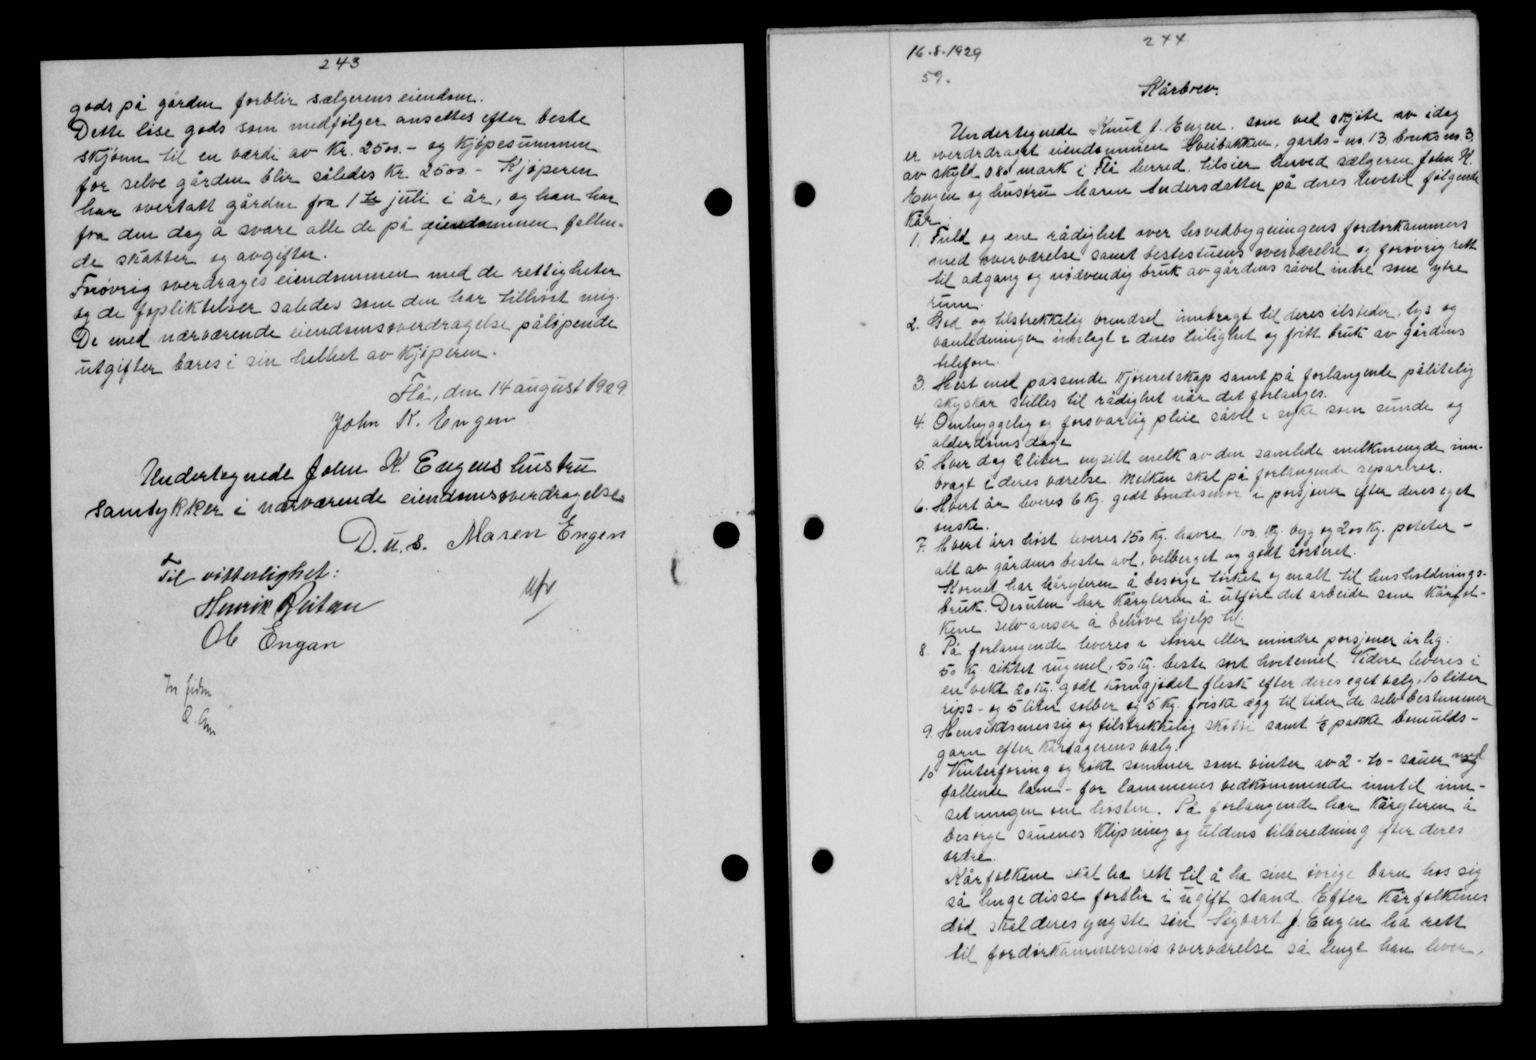 243
gods på gården forblir sælgerens eiendom.
Dette løse gods som medfølger ansettes efter beste
skjønn til en værdi av kr. 2500.- og kjøpesummen
for selve gården blir således kr. 2500.- Kjøperen
har overtatt gården fra 1ste juli i år, og han har
fra den dag å svare alle de på eiendommen fallen-
de skatter og avgifter.
Forøvrig overdrages eiendommen med de rettigheter
og de fopliktelser således som den har tilhørt mig.
De med nærværende eiendomsoverdragelse påløpende
utgifter bæres i sin helhet av kjøperen.
Flå, den 14 august 1929.
John K. Engen
Undertegnede John K Engens hustru
samtykker i nærværende eiendomsoverdragelse
D.u.s. Maren Engen
Til vitterlighet:
Henrik Reitan
Ole Engan
244
16.8.1929
59.
Kårbrev.
Undertegnede Knut J. Engen, som ved skjøte av idag
er overdraget eiendommen Hveibakken, gards-nr. 13 bruks nr. 3,
av skyld mark i Flå herred, tilsier herved sælgeren John K.
Engen og hustru Maren Andersdatter på deres livetid følgende
kår
1. Fuld og ene rådighet over hovedbygningens fordørkammers
med overværelse samt bestestuens overværelse og forøvrig rett
til adgang og nødvendig bruk av gårdens såvel indre som ytre
rum.
2. God og tilstrekkelig brendsel innbragt til deres ilsteder, lys og
vannledninger innlagt i deres leilighet og fritt bruk av gårdens
telefon.
3. Hest med passende kjøreretskap samt på forlangende pålitelig
skyskar stilles til rådighet når det forlanges.
4. Omhyggelig og forsvarlig pleie såvel i syke som sunde og
alderdomsdage
5. Hver dag 2 liter nysilt melk av den samlede melkmengde inn-
bragt i deres værelse. Melken skal på forlangende separeres.
6. Hvert år leveres 6 kg. godt bondesmør i porsjoner efter deres eget
ønske.
7. Hvert års høst leveres 150 kg. havre, 100 kg. bygg og 200 kg. poteter -
alt av gårdens beste avl, velberget og godt sorteret.
Kornet har kåryteren å besørge tørket og malt til husholdnings-
bruk. Desuten har kåryteren å utføre det arbeide som kårfol-
kene selv anser å behøve hjelp til.
8. På forlangende leveres i større eller mindre porsjoner årlig:
50 kg. siktet rugmel, 50 kg. beste sort hvetemel. Videre leveres i
en vekt 20 kg. godt korngjødet flesk efter deres eget valg, 10 liter
rips- og 5 liter solber og 5 kg. friske ægg til tider de selv bestemmer
9. Hensiktsmessig og tilstrekkelig skotøi samt ½ pakke bomulds-
garn efter kårtagerens valg.
10 Vinterforing og røkt sommer som vinter av 2 - to - sauer med
fallende lam - for lammenes vedkommende inntil inn-
setningen om høsten. På forlangende har kåryteren å
besørge sauenes klipning og uldens tilberedning efter deres
ordre.
Kårfolkene skal ha rett til å ha sine øvrige barn hos sig
så lenge disse forblir i ugift stand. Efter kårfolkenes
død skal deres yngste søn Sigvart J. Engen ha rett
til fordørkammersets overværelse så lenge han lever,